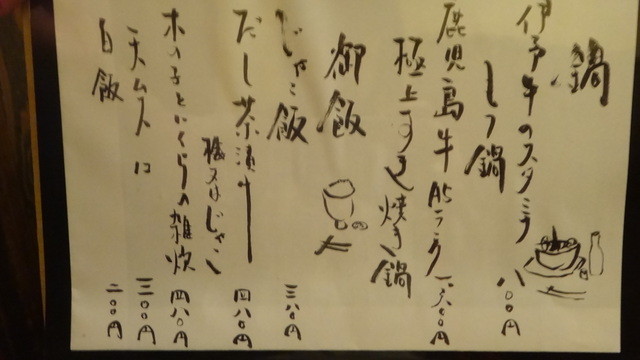 鍋
伊予牛のスタミナ
もつ鍋 八〇〇円
鹿児島牛A5ランク
極上すき焼き鍋 一、六八〇円
御飯
じゃこ飯 三八〇円
だし茶漬け 四八〇円
梅又はじゃこ
木の子といくらの雑炊 四八〇円
天ムス 三〇〇円
白飯 二〇〇円